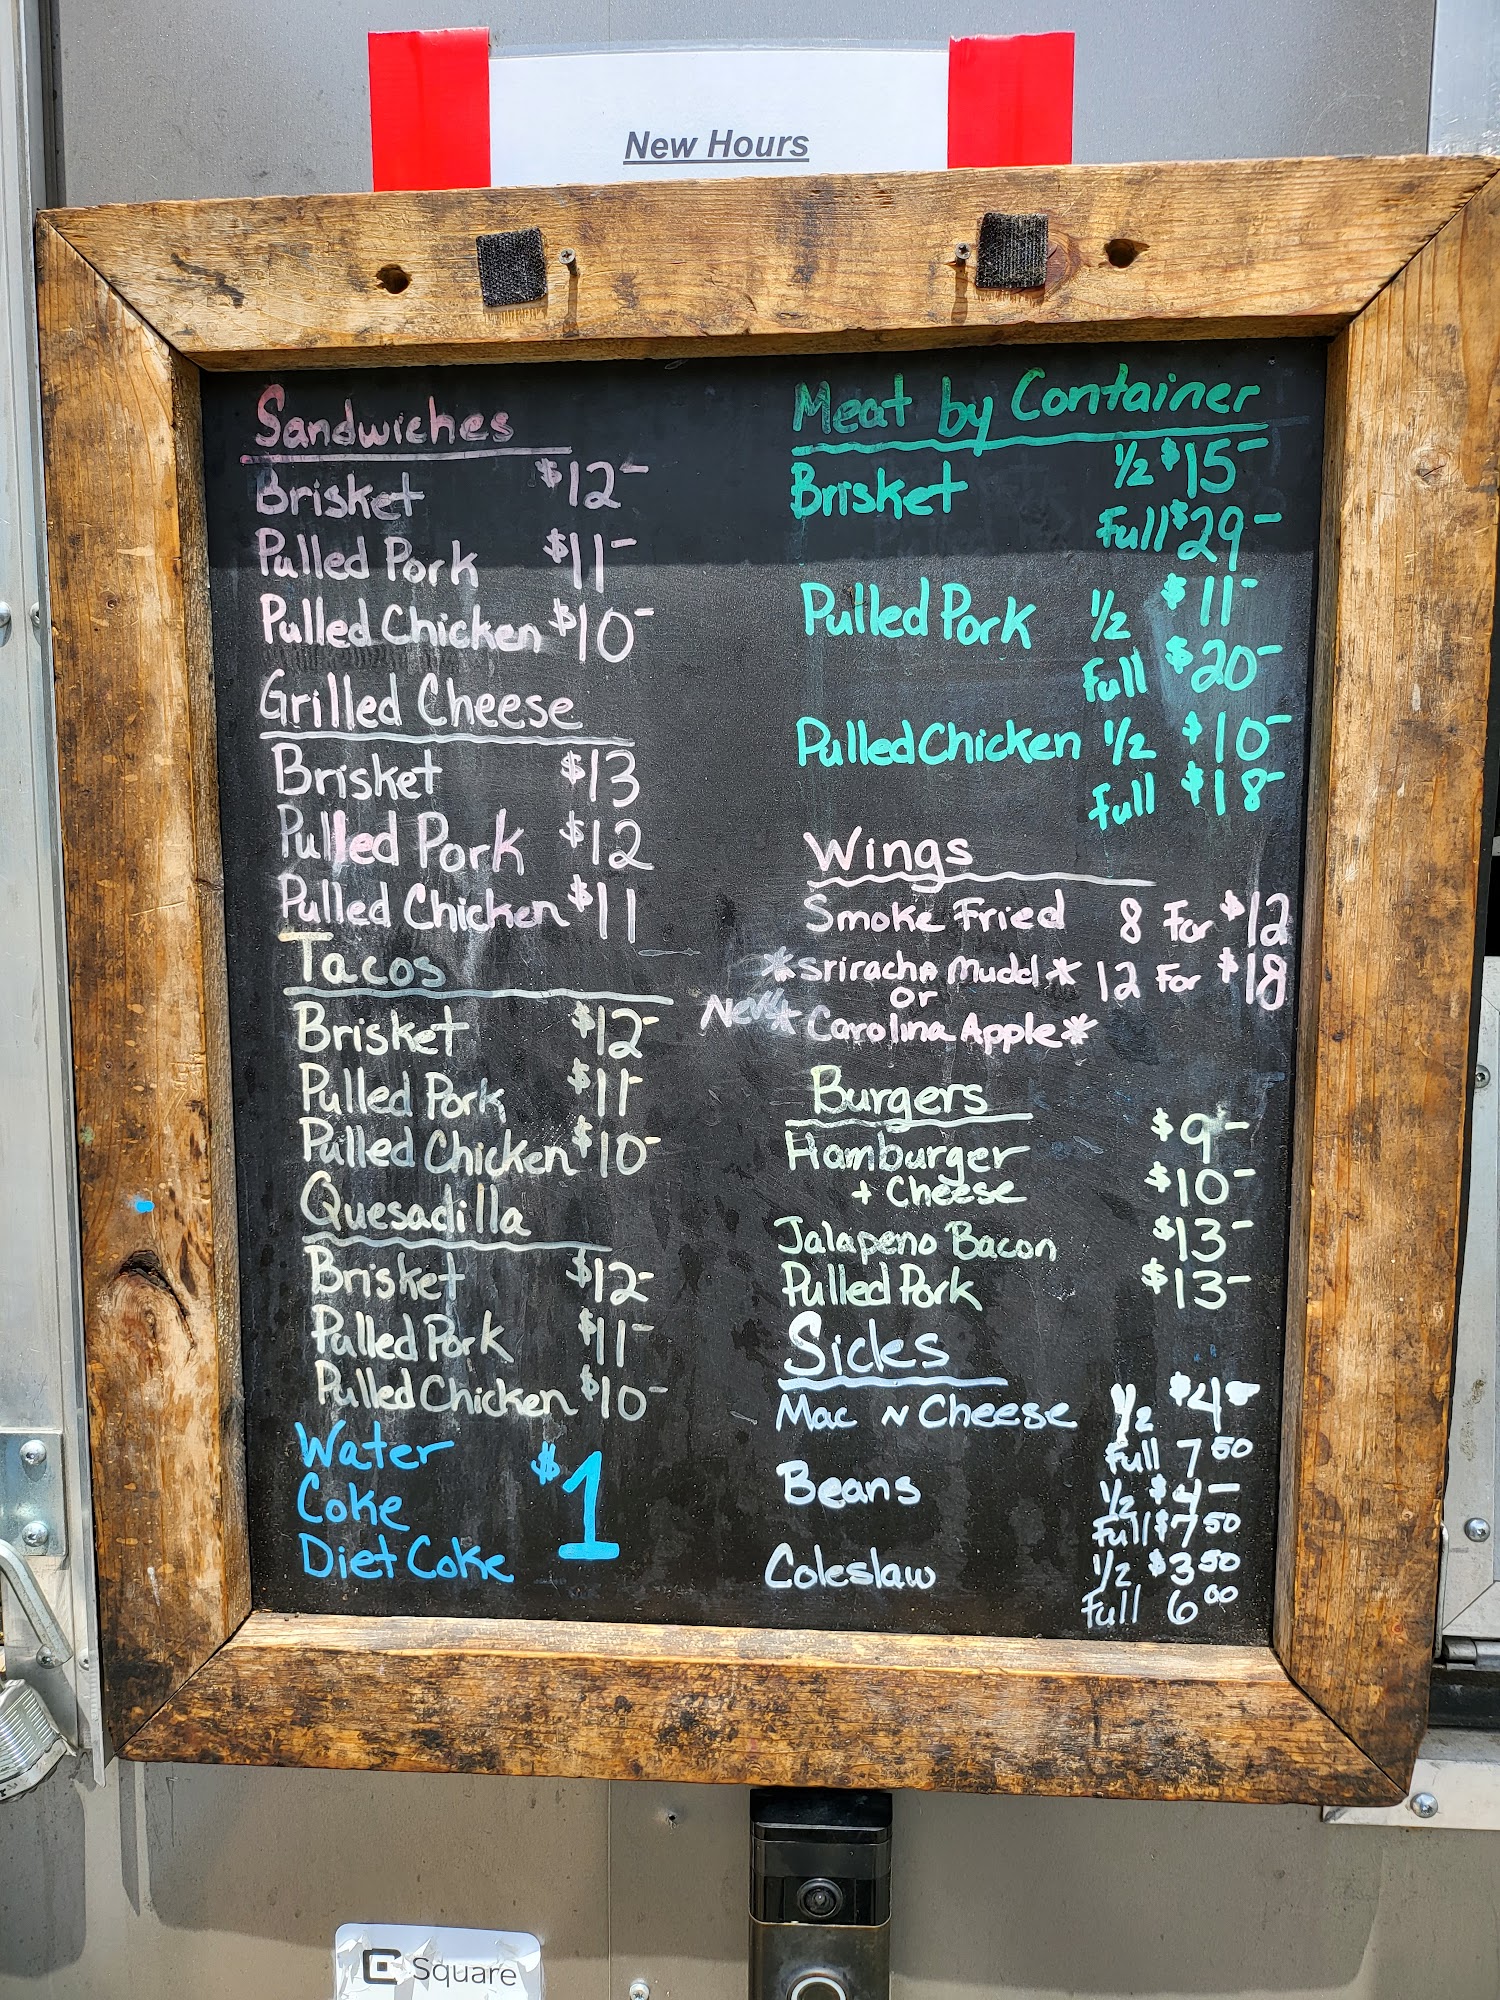 New Hours
Sandwiches
Brisket $12-
Pulled Pork $11-
Pulled Chicken $10-
Grilled Cheese
Brisket $13
Pulled Pork $12
Pulled Chicken $11
Tacos
Brisket $12-
Pulled Pork $11-
Pulled Chicken $10-
Quesadilla
Brisket $12-
Pulled Pork $11-
Pulled Chicken $10-
Water
Coke $1
Diet Coke
Meat by Container
Brisket 1/2 $15-
Full $29-
Pulled Pork 1/2 $11-
Full $20-
Pulled Chicken 1/2 $10-
Full $18-
Wings
Smoke Fried 8 For $12
*Sriracha Mudd* 12 For $18
or
New* Carolina Apple*
Burgers
Hamburger $9-
+ Cheese $10-
Jalapeno Bacon $13-
Pulled Pork $13-
Sides
Mac N Cheese 1/2 $4-
Full 7 50
Beans 1/2 $4-
Full $7 50
Coleslaw 1/2 $3 50
Full 6 00
Square